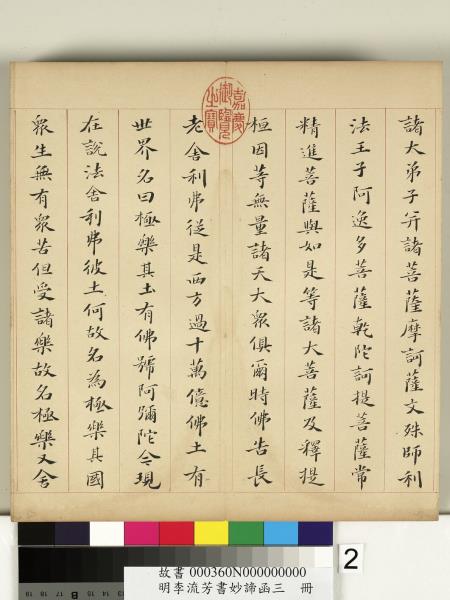 諸大弟子并諸菩薩摩訶薩文殊師利
法王子阿逸多菩薩乾陀訶提菩薩常
精進菩薩與如是等諸大菩薩及釋提
桓因等無量諸天大衆俱爾時佛告長
老舍利弗從是西方過十萬億佛土有
世界名曰極樂其土有佛號阿彌陀今現
在說法舍利弗彼土何故名為極樂其國
衆生無有衆苦但受諸樂故名極樂又舍
嘉慶御覽之寶
2
故書 000360N000000000
明李流芳書妙諦函三 冊